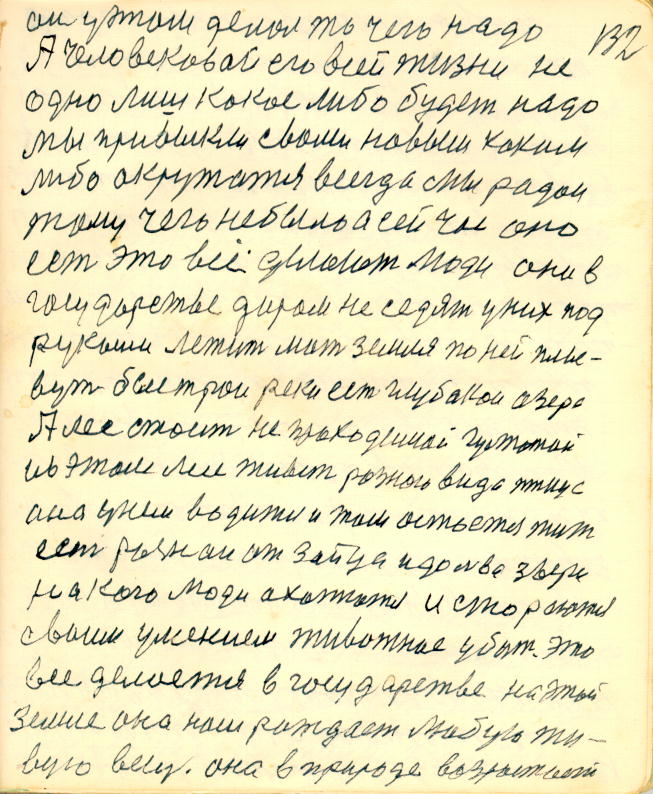 он у том делат то чего надо
132
А человековой его всей жизни не
одно лиш какое либо будет надо
мы привыкли своим новым каким
либо окружатся всегда мы рады
тому чего небыло а сей час оно
ест это всё делают люди они в
государстве даром неседят у них под
рукоми лежит мат земля по ней плы-
вут быстрои реки ест глубокои озера
А лес стоит не проходимой густотой
и в этом лесе живет разного вида птиц
она у них водитя и там остаетя жит
ест разнои от зайца и до льва звери
на кого люди охотятя и стораютя
своим умением животное убит. это
все делаетя в государстве на этой
земле она нам рождает любую жи-
вую вещ. она в природе возростает